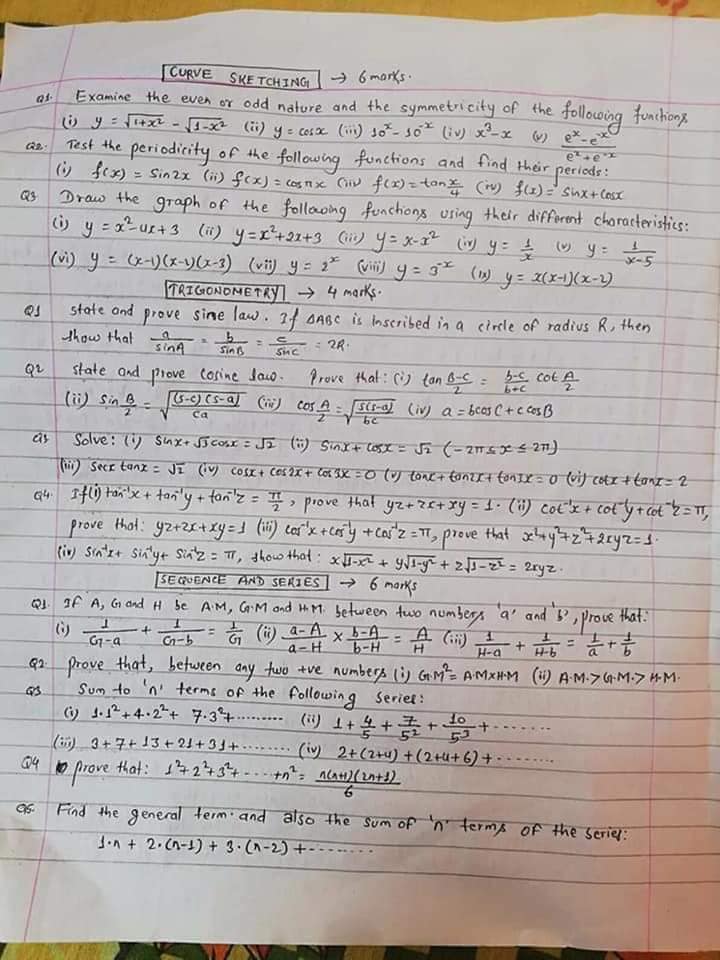 CURVE SKETCHING → 6 marks.
Q1. Examine the even or odd nature and the symmetricity of the following functions
(i) y = √(1+x²) - √(1-x²) (ii) y = cosx (iii) 10ˣ - 10⁻ˣ (iv) x³-x (v) (eˣ-e⁻ˣ)/(eˣ+e⁻ˣ)
Q2. Test the periodicity of the following functions and find their periods:
(i) f(x) = Sin2x (ii) f(x) = cosπx (iii) f(x) = tan x/4 (iv) f(x) = Sinx + Cosx
Q3 Draw the graph of the following functions using their different characteristics:
(i) y = x²-4x+3 (ii) y = x²+2x+3 (iii) y = x-x² (iv) y = 1/x (v) y = 1/(x-5)
(vi) y = (x-1)(x-2)(x-3) (vii) y = 2ˣ (viii) y = 3⁻ˣ (ix) y = x(x-1)(x-2)
TRIGONOMETRY → 4 marks.
Q1 state and prove sine law. If ΔABC is inscribed in a circle of radius R, then
show that a/sinA = b/sinB = c/sinc = 2R.
Q2 state and prove cosine law. Prove that: (i) tan (B-C)/2 = (b-c)/(b+c) cot A/2
(ii) Sin B/2 = √((s-c)(s-a)/ca) (iii) cos A/2 = √(s(s-a)/bc) (iv) a = bcosC + ccosB
Q3 Solve: (i) Sinx + √3 cosx = √2 (ii) Sinx + Cosx = √2 (-2π ≤ x ≤ 2π)
(iii) secx tanx = √2 (iv) cosx + cos2x + cos3x = 0 (v) tanx + tan2x + tan3x = 0 (vi) cotx + tanx = 2
Q4. If (i) tan⁻¹x + tan⁻¹y + tan⁻¹z = π/2, prove that yz + zx + xy = 1. (ii) cot⁻¹x + cot⁻¹y + cot⁻¹z = π,
prove that: yz+zx+xy=1 (iii) cos⁻¹x + cos⁻¹y + cos⁻¹z = π, prove that x²+y²+z²+2xyz=1.
(iv) Sin⁻¹x + Sin⁻¹y + Sin⁻¹z = π, show that: x√(1-x²) + y√(1-y²) + z√(1-z²) = 2xyz.
SEQUENCE AND SERIES → 6 marks
Q1. If A, G and H be A.M, G.M and H.M. between two numbers 'a' and 'b', prove that:
(i) 1/(G-a) + 1/(G-b) = 1/G (ii) (a-A)/(a-H) × (b-A)/(b-H) = A/H (iii) 1/(H-a) + 1/(H-b) = 1/a + 1/b
Q2. prove that, between any two +ve numbers (i) G.M² = A.M×H.M (ii) A.M. > G.M. > H.M.
Q3 Sum to 'n' terms of the following series:
(i) 1·1² + 4·2² + 7·3² + ......... (ii) 1 + 4/5 + 7/5² + 10/5³ + .......
(iii) 3+7+13+21+31+........ (iv) 2+(2+4)+(2+4+6)+........
Q4 prove that: 1²+2²+3²+.....+n² = n(n+1)(2n+1)/6
Q5. Find the general term and also the sum of 'n' terms of the series:
1·n + 2·(n-1) + 3·(n-2) + ........